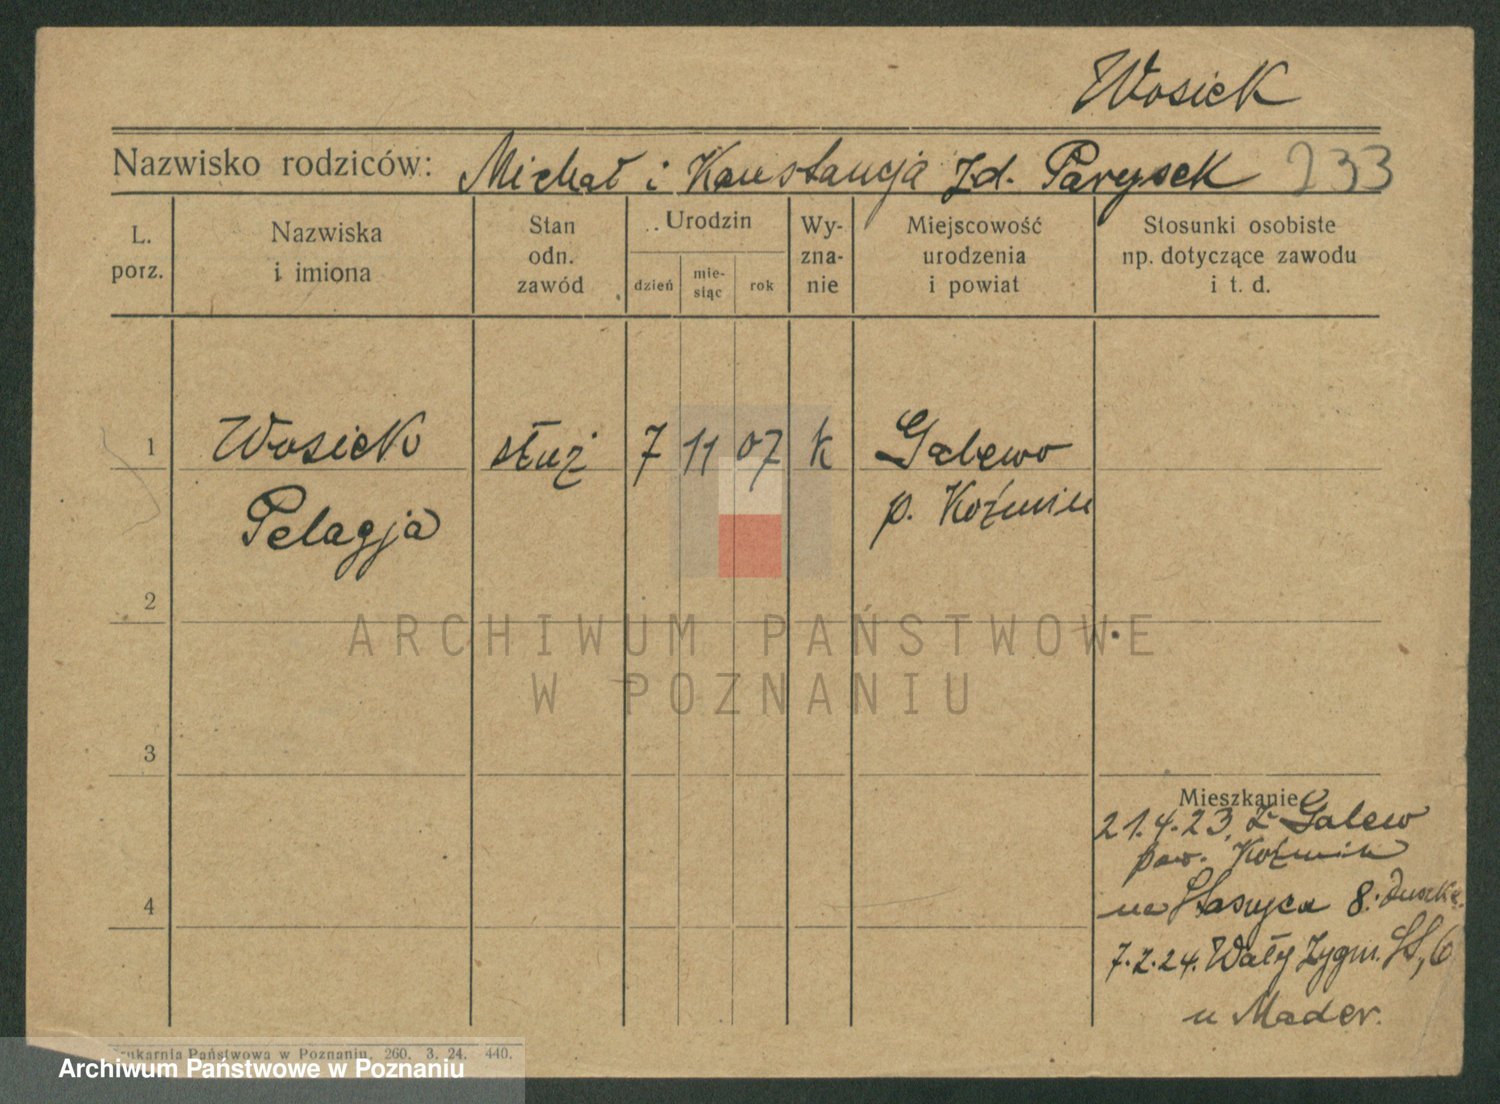 Wosiek
Nazwisko rodziców: Michał i Konstancja zd. Parysek 233
L. porz.
Nazwiska i imiona
Stan odn. zawód
Urodzin
dzień
mie-siąc
rok
Wy-zna-nie
Miejscowość urodzenia i powiat
Stosunki osobiste np. dotyczące zawodu i t. d.
1 Wosiek służ 7 11 07 k Galewo
Pelagja p. Koźmin
2
ARCHIWUM PAŃSTWOWE
W POZNANIU
3
Mieszkanie
21.4.23, z Galew
pow. Koźmin
4
na Staszyca 8.
7.2.24. Wały Zygm. St, 6
u Mader.
Drukarnia Państwowa w Poznaniu, 260. 3. 24. 440.
Archiwum Państwowe w Poznaniu